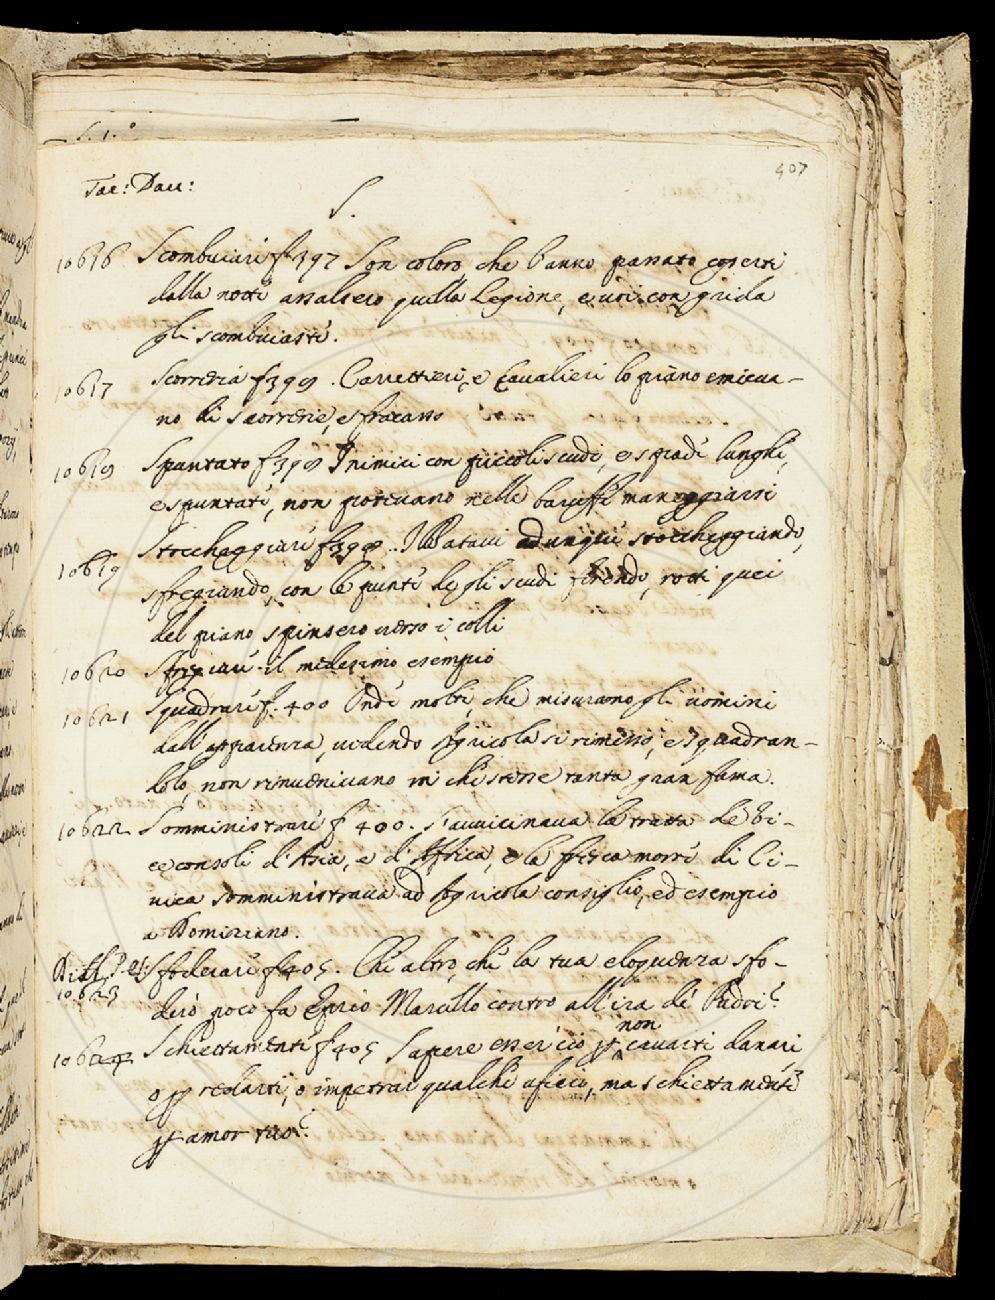 407
Tac: Dav:
S.
10616 Scombuiare f. 397 Son coloro, che l'anno passato coperti
dalla notte assalsero quella Legione, e voi con grida
gli scombuiaste.
10617 Scorreria f 398. Carrettieri, e Cavalieri lo piano empieva-
no di scorrerie, e fracasso
10618 Spuntato f 398 Inimici con piccoli scudi, e spade lunghe,
e spuntate, non potevano nelle baruffe maneggiarsi
10619 Stoccheggiare f 398. I Batavi adunque stoccheggiando,
sfregiando, con le punte degli scudi ferendo, rotti quei
del piano spinsero verso i colli
10620 Sfregiare il medesimo esempio
10621 Squadrare f. 400 Onde molti, che misurano gli uomini
dall'apparenza, vedendo Agricola si rimesso, e squadran-
dolo, non rinvenivano in che stesse tanta gran fama.
10622 Somministrare f 400. S'avvicinava la tratta de Vi-
ceconsoli d'Asia, e d'Affrica, e la fresca morte di Ci-
vica somministrava ad Agricola consiglio, ed esempio
a Domiziano.
10623 Sfoderare f 405. Che altro, che la tua eloquenza sfo-
derò poco fa Eprio Marcello contro all'ira de Padri?
10624 Schiettamente f 405 Sapere esser ciò p non cavarti danari,
o p redarti, o impetrar qualche ufici, ma schiettamente
p amor tuo?